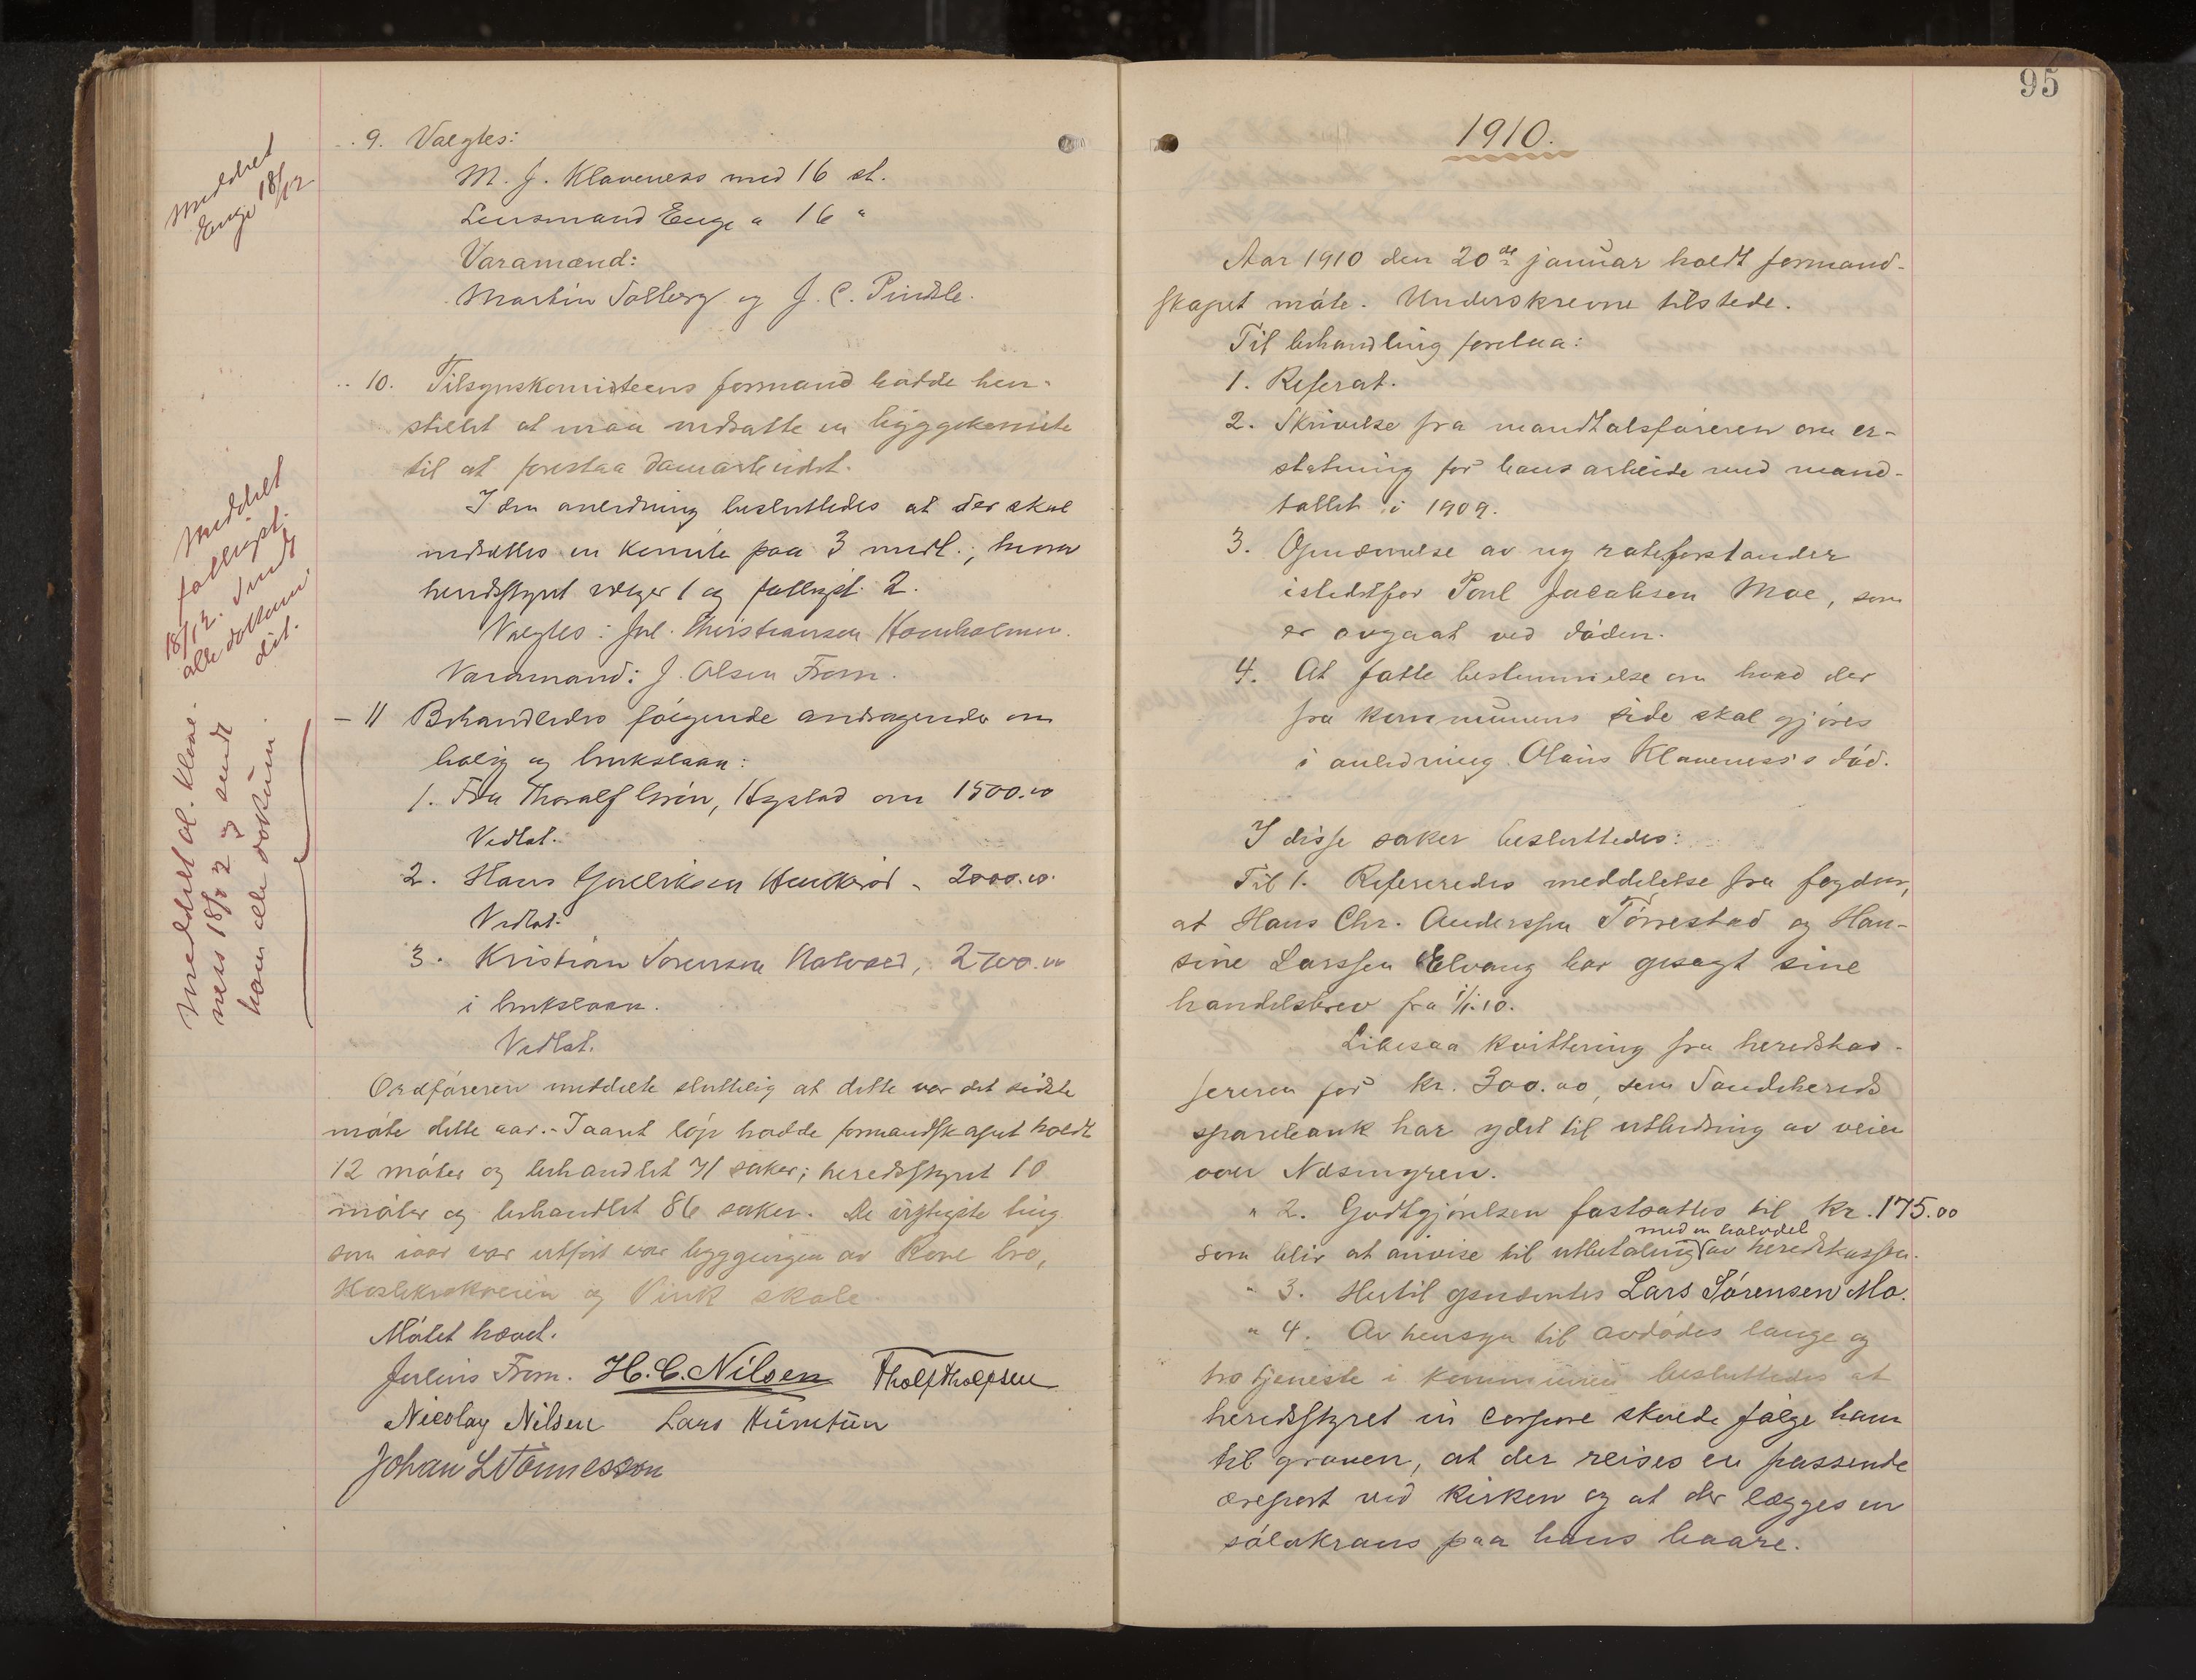 9. Valgtes:
M. J. Klaveness med 16 st.
Lensmand Enge " 16 "
Varamænd:
Martin Solberg og J. C. Pindsle.
10. Tilsynskomiteens formand hadde hen-
stillet at maa nedsatte en byggekomite
til at forestaa damarbeidet.
I den anledning besluttedes at der skal
nedsættes en komite paa 3 medl.; hvorav
herredsstyret vælger 1 og fattigst. 2.
Valgtes: Jul. Christiansen
Varamand: J. Olsen From.
- 11 Behandledes følgende andragender om
bolig og brukslaan:
1. Fra Thoralf om 1500.00
Vedtat.
2. Hans " 2000.00.
Vedtat.
3. Kristian Sørensen
i brukslaan.
Vedtat.
Ordføreren meddelte sluttelig at dette var det sidste
møte dette aar. - I aaret løp hadde formandskapet holdt
12 møter og behandlet 71 saker; herredsstyret 10
møter og behandlet 86 saker. De vigtigste ting
som iaar var utført var byggningen av bro,
og skole.
Møtet hævet.
Julius From. H. C. Nilsen Tholf Tholfsen
Nicolay Nilsen Lars Huntun
Johan L Tønnesson
Meddelt
Enge 18/12
Meddelt
fattigst.
18/12. Sendt
alle dokum.
dit.
Meddelt ol. Klave-
ness 18/ og sendt
ham alle dokum.
95
1910.
Aar 1910 den 20de januar holdt formand-
skapet møte. Underskrevne tilstede.
Til behandling forelaa:
1. Referat.
2. Skrivelse fra mandtalsføreren om er-
statning for hans arbeide med mand-
tallet i 1909.
3. Opnævnelse av ny rodeforstander
istedetfor Poul Jacobsen Moe, som
er avgaat ved døden.
4. At fatte bestemmelse om hvad der
fra kommunens side skal gjøres
i anledning Olaus Klaveness's død.
I disse saker besluttedes:
Til 1. Refereredes meddelelse fra fogden,
at Hans Chr. Anderssen Tørrestad og Han-
sine Larssen Elvang har opsagt sine
handelsbrev fra 1/1.10.
Likesaa kvittering fra heredskas-
sereren for kr. 300.00, som Sandehereds
sparebank har ydet til utbedring av veien
over Næsmyren.
" 2. Godtgjørelsen fastsattes til kr. 175.00
med en halvdel
som blir at anvise til utbetaling av heredskassen.
" 3. Hertil opnævntes Lars Sørensen Mo.
" 4. Av hensyn til avdødes lange og
tro tjeneste i kommunen besluttedes at
heredsstyret in corpore skulde følge ham
til graven, at der reises en passende
æreport ved kirken og at der lægges en
sølvkrans paa hans baare.